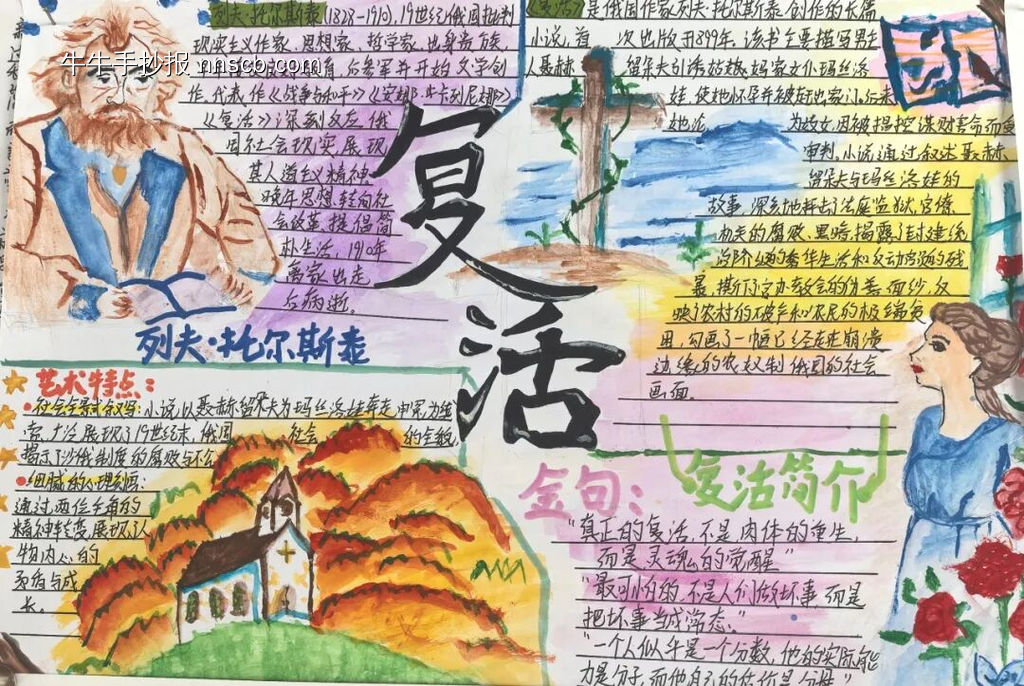 列夫·托尔斯泰(1828-1910),19世纪俄国批判
现实主义作家、思想家、哲学家,出身贵族,
后参军并开始文学创
作,代表作《战争与和平》《安娜·卡列尼娜》
《复活》深刻反应俄
国社会现实,展现
其人道主义精神。
晚年思想转向社
会改革,提倡简
朴生活,1910年
离家出走
后病逝。
列夫·托尔斯泰
牛牛手抄报 nnscb.com
复活
《复活》是俄国作家列夫·托尔斯泰创作的长篇
小说,首 次出版于1899年。该书主要描写男主
人聂赫 留朵夫引诱姑妈家女仆玛丝洛
娃,使她怀孕并被赶出家门。后来
她沦 为妓女,因被指控谋财害命而受
审判。小说通过叙述聂赫
留朵夫与玛丝洛娃的
故事,深刻地抨击了法庭、监狱、官僚
的腐败、黑暗,揭露封建统
治阶级的奢华生活和反动
撕下了官办教会的伪善面纱,反
映了农村的破产和农民的极端贫
困,勾画了一幅已经走进崩溃
边缘的农奴制俄国的社会
画面。
复活简介
艺术特点:
社会全景式叙写:小说以聂赫留朵夫为玛丝洛娃奔走申冤为线
索,广泛展现了19世纪末,俄国 社会 的全貌,
揭示了沙俄制度的腐败与不公
细腻的心理刻画:
通过两位主角的
精神转变,展现人
物内心的
矛盾与成
长。
金句:
“真正的复活,不是肉体的重生,
而是灵魂的觉醒”
“最可怕的,不是人们做坏事,而是
把坏事当成常态。”
“一个人似乎是一个分数,他的实际能
力是分子,而他自己的估价是分母”